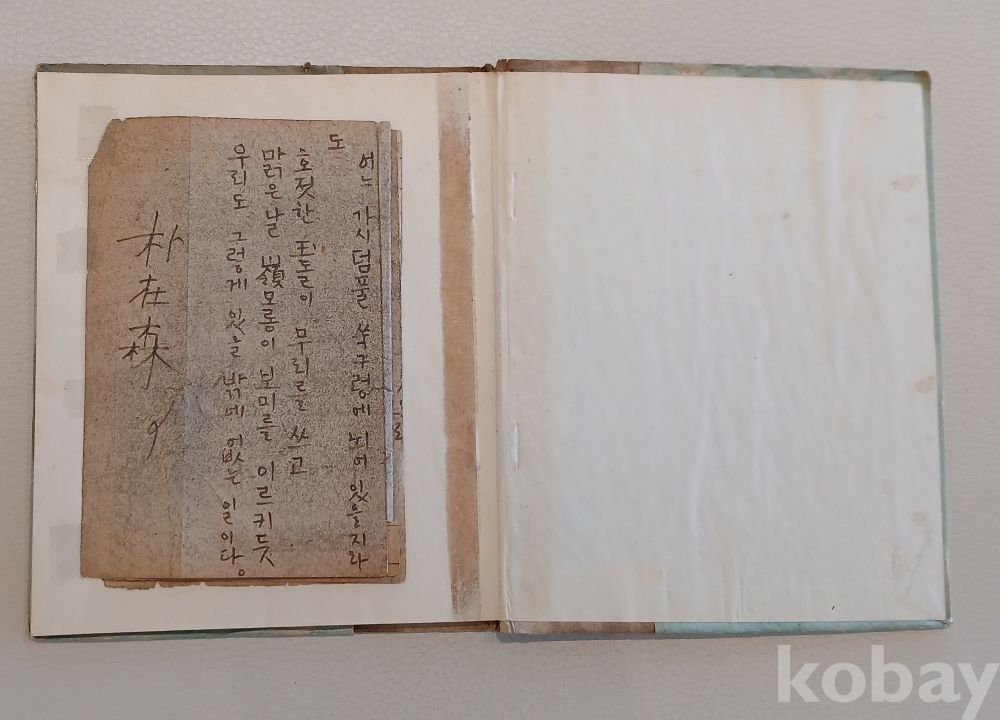 어느 가시덤풀 쑥구렁에 뉘어 있을지라
도
호젓한 玉돌이 무리를 쓰고
맑은 날 嶺모롱이 보미를 이르키듯
우리도 그렇게 있을 밖에 없는 일이다。
朴在森
kobay